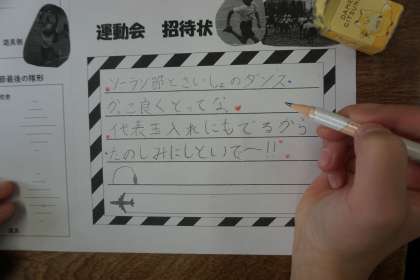 運動会 招待状
ソーラン節とさいしょのダンス
かっこ良くとってな
代表玉入れにもでるから
たのしみにしといて〜!!